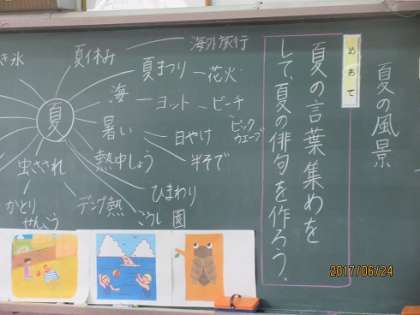 夏の風景
めあて
夏の言葉集めを
して、夏の俳句を作ろう。
夏
夏休み
海外旅行
夏まつり
花火
海
ヨット
ビーチ
ビックウェーブ
暑い
日やけ
半そで
熱中しょう
ひまわり
デング熱
虫さされ
かとり
せんこう
き氷
2017/06/24